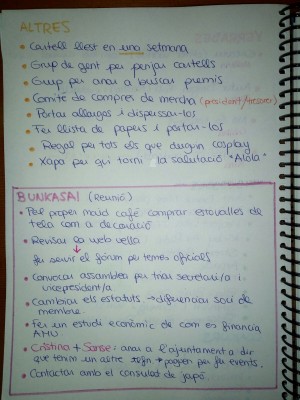 ALTRES
• Cartell llest en una setmana
• Grup de gent per penjar cartells
• Grup per anar a buscar premis
• Comitè de compres de mercha (president/tresorer)
• Portar allargos i dispensar-los
• Fer llista de papers i portar-los
• Regal per tots els que duguin cosplay
• Xapa per qui torni la salutació "Alola"
BUNKASAI (Reunió)
• Pel proper maid café comprar estovalles de
tela com a decoració
• Revisar la web vella
fer servir el fòrum per temes oficials
• Convocar assamblea per triar secretari/a i
vicepresident/a
• Canviar els estatuts → diferenciar soci de
membre.
• Fer un estudi econòmic de com es financia
AMU.
• Cristina + Sanse: anar a l'ajuntament a dir
que tenim un altre i paguen per fer events.
• Contactar amb el consulat de Japó.